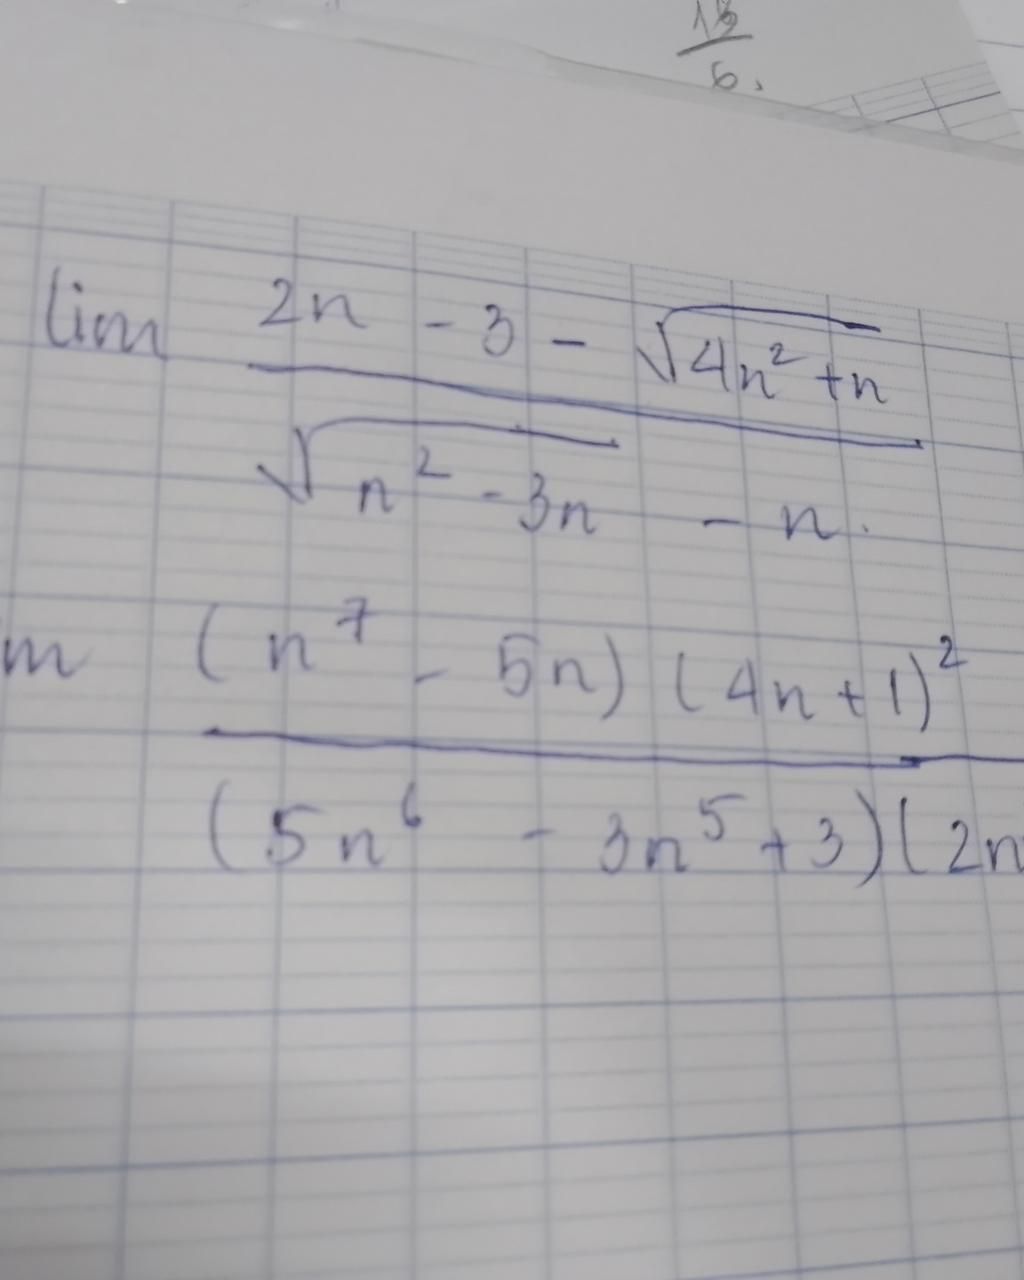 6.
lim (2n - 3 - √(4n² + n)) / (√(n² - 3n) - n.)
m ((n⁷ - 5n) (4n + 1)²) / ((5n⁶ - 3n⁵ + 3)(2n